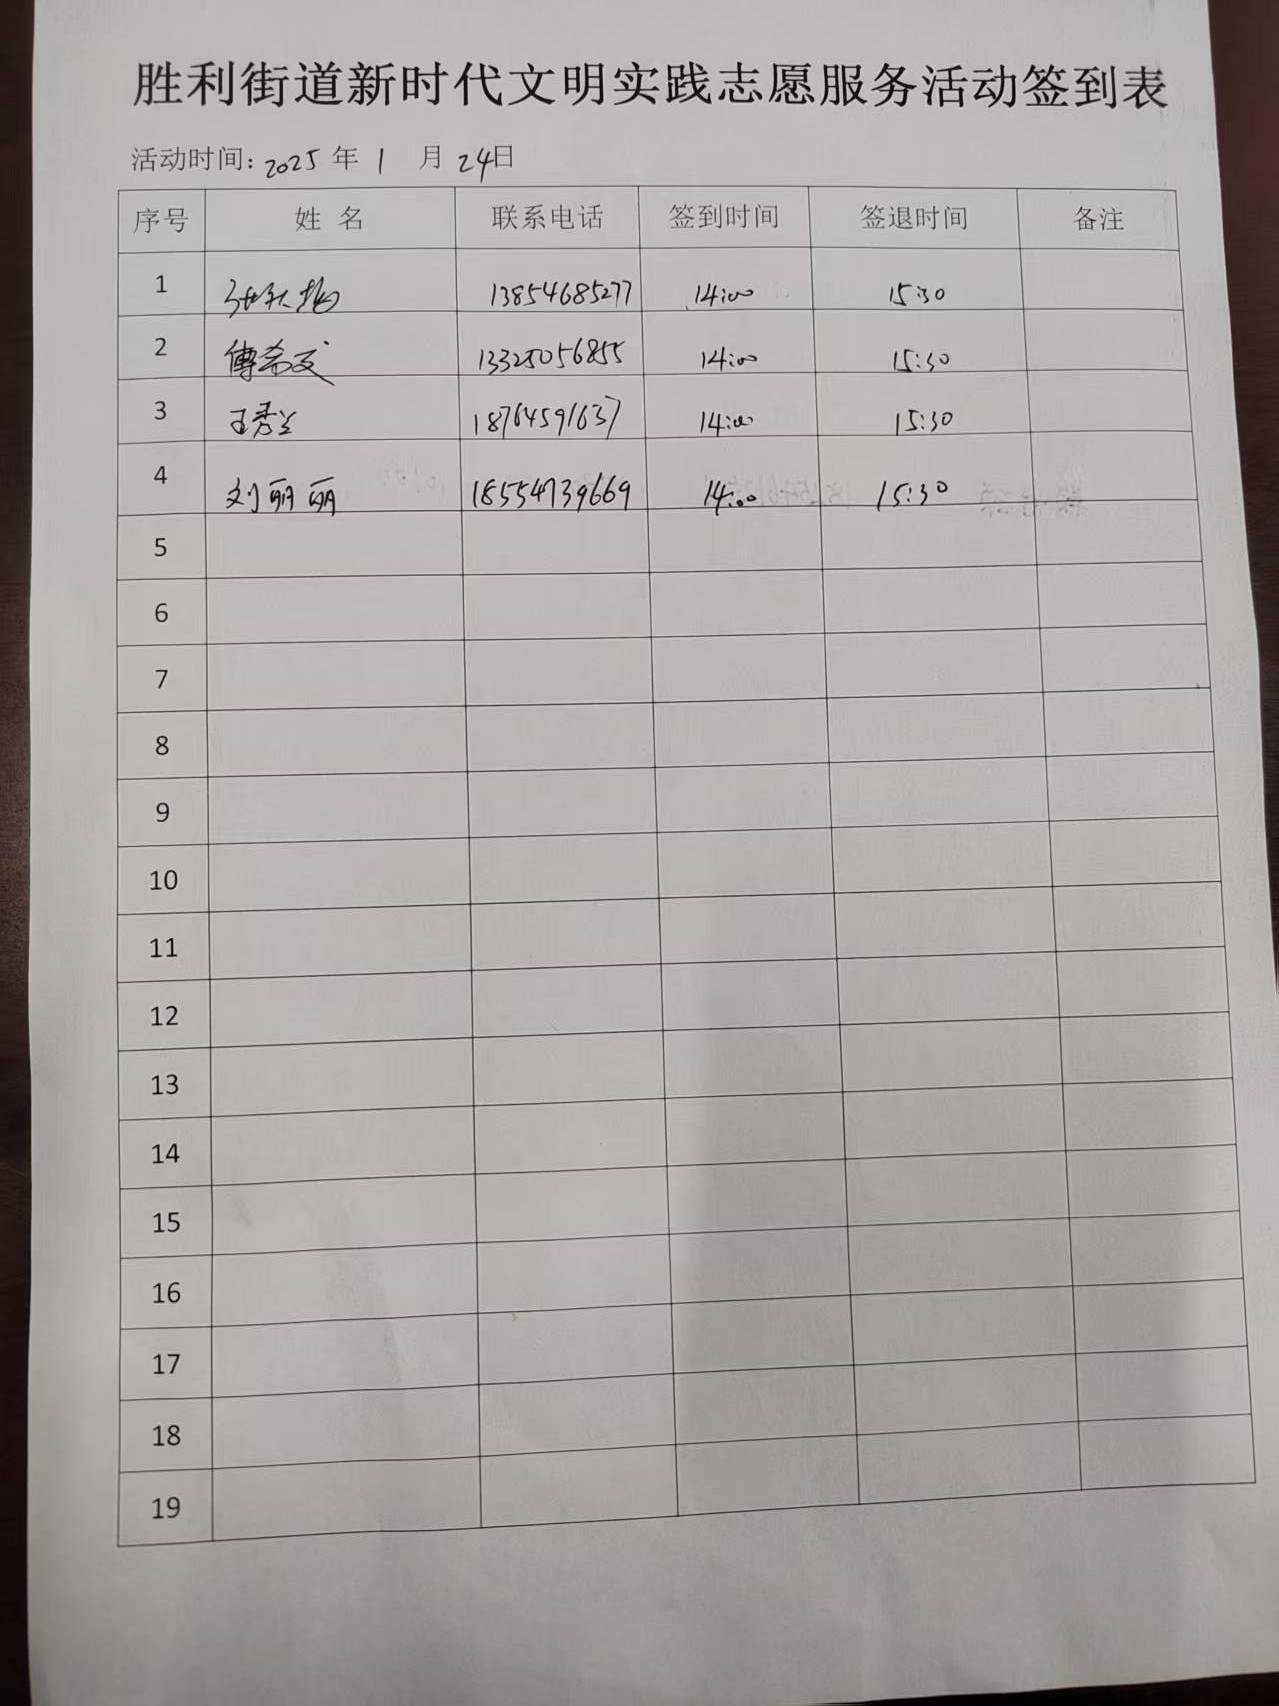 胜利街道新时代文明实践志愿服务活动签到表
活动时间: 2025 年 1 月 24日
序号 姓 名 联系电话 签到时间 签退时间 备注
1 13854685277 14:00 15:30
2 傅希友 13325056855 14:00 15:30
3 王秀兰 18764591637 14:00 15:30
4 刘丽丽 18554739669 14:00 15:30
5
6
7
8
9
10
11
12
13
14
15
16
17
18
19